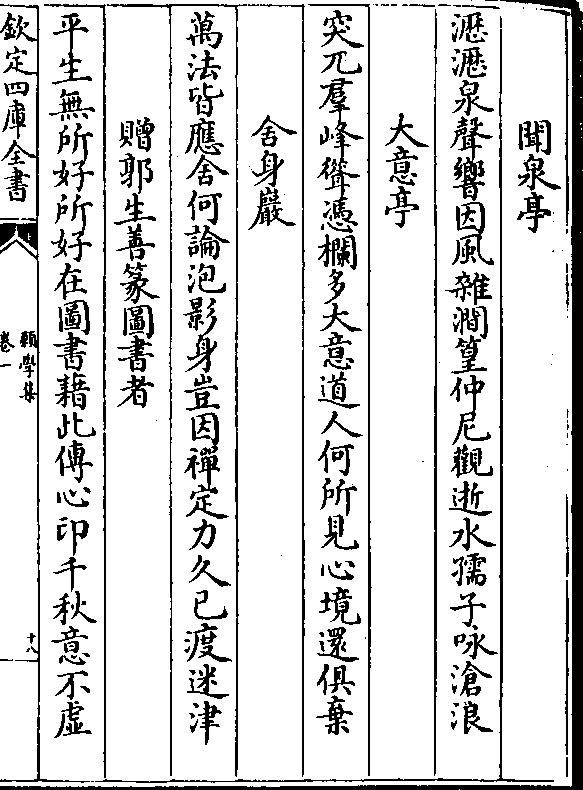 聞泉亭
瀝瀝泉聲響因風雜澗篁仲尼觀逝水孺子咏滄浪
大意亭
突兀羣峰聳憑欄多大意道人何所見心境還俱棄
舍身巖
萬法皆應舍何論泡影身豈因禪定力久已渡迷津
贈郭生善篆圖書者
平生無所好所好在圖書藉此傳心印千秋意不虛
欽定四庫全書
願學集
卷一
十八